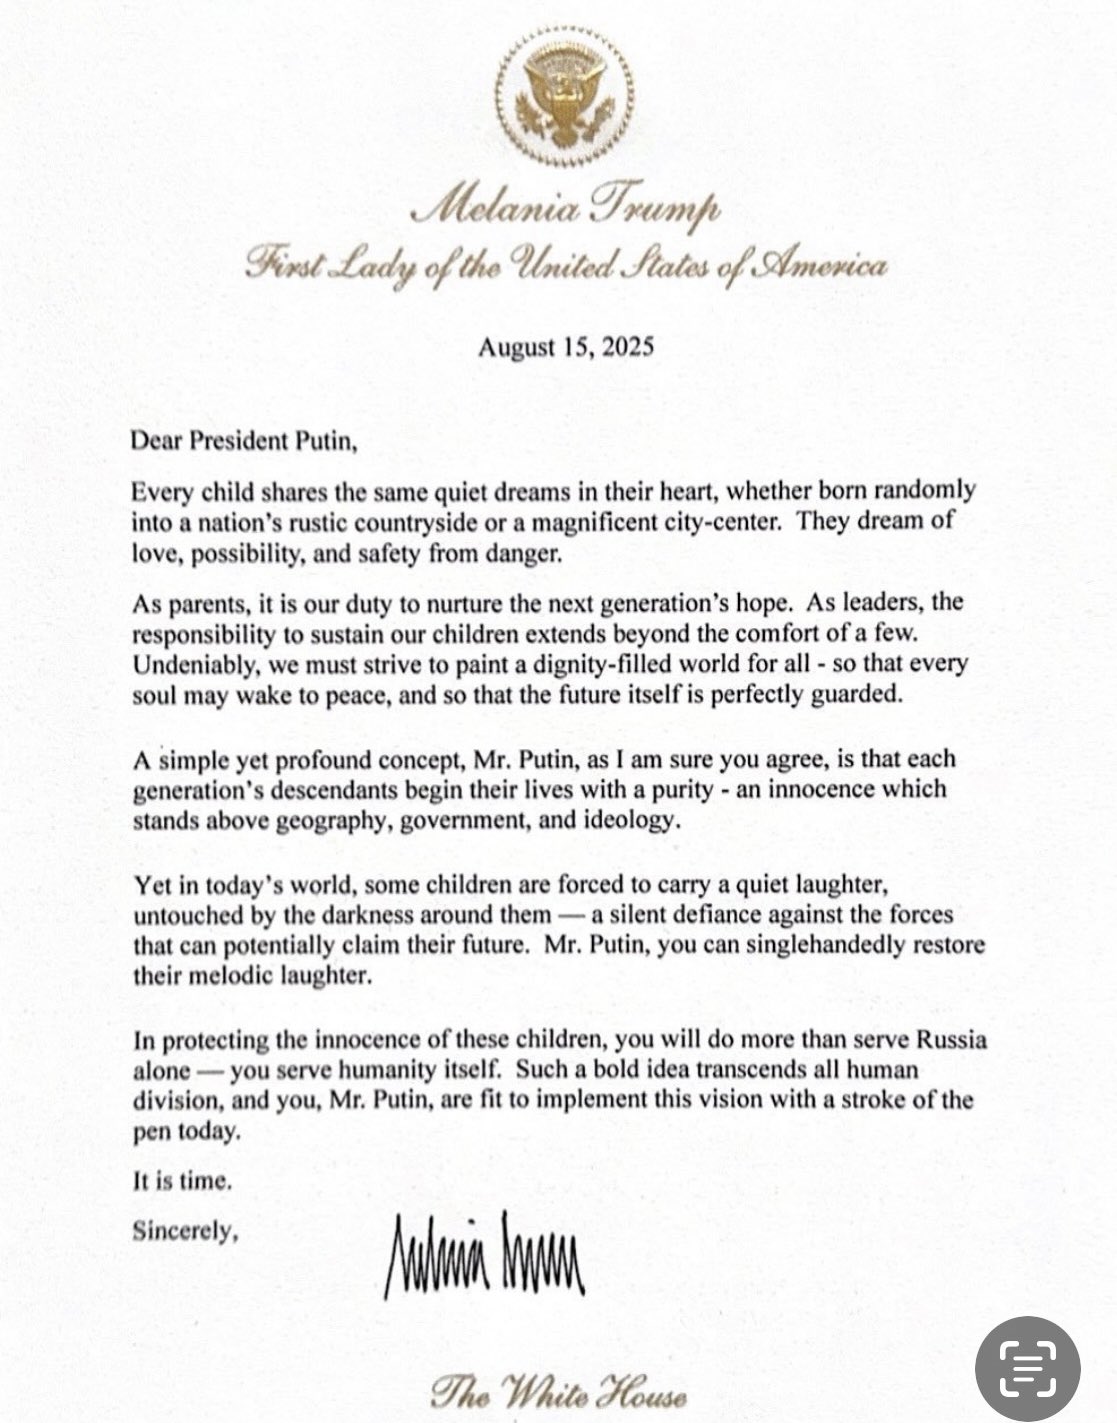 Melania Trump
First Lady of the United States of America
August 15, 2025
Dear President Putin,
Every child shares the same quiet dreams in their heart, whether born randomly
into a nation's rustic countryside or a magnificent city-center.  They dream of
love, possibility, and safety from danger.
As parents, it is our duty to nurture the next generation's hope.  As leaders, the
responsibility to sustain our children extends beyond the comfort of a few.
Undeniably, we must strive to paint a dignity-filled world for all - so that every
soul may wake to peace, and so that the future itself is perfectly guarded.
A simple yet profound concept, Mr. Putin, as I am sure you agree, is that each
generation's descendants begin their lives with a purity - an innocence which
stands above geography, government, and ideology.
Yet in today's world, some children are forced to carry a quiet laughter,
untouched by the darkness around them — a silent defiance against the forces
that can potentially claim their future.  Mr. Putin, you can singlehandedly restore
their melodic laughter.
In protecting the innocence of these children, you will do more than serve Russia
alone — you serve humanity itself.  Such a bold idea transcends all human
division, and you, Mr. Putin, are fit to implement this vision with a stroke of the
pen today.
It is time.
Sincerely,
The White House